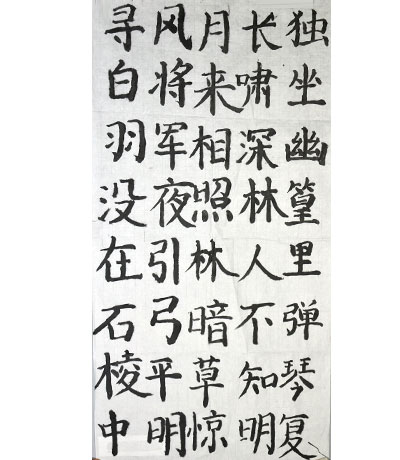 独坐幽篁里弹琴复
长啸深林人不知明
月来相照林暗草惊
风将军夜引弓平明
寻白羽没在石棱中